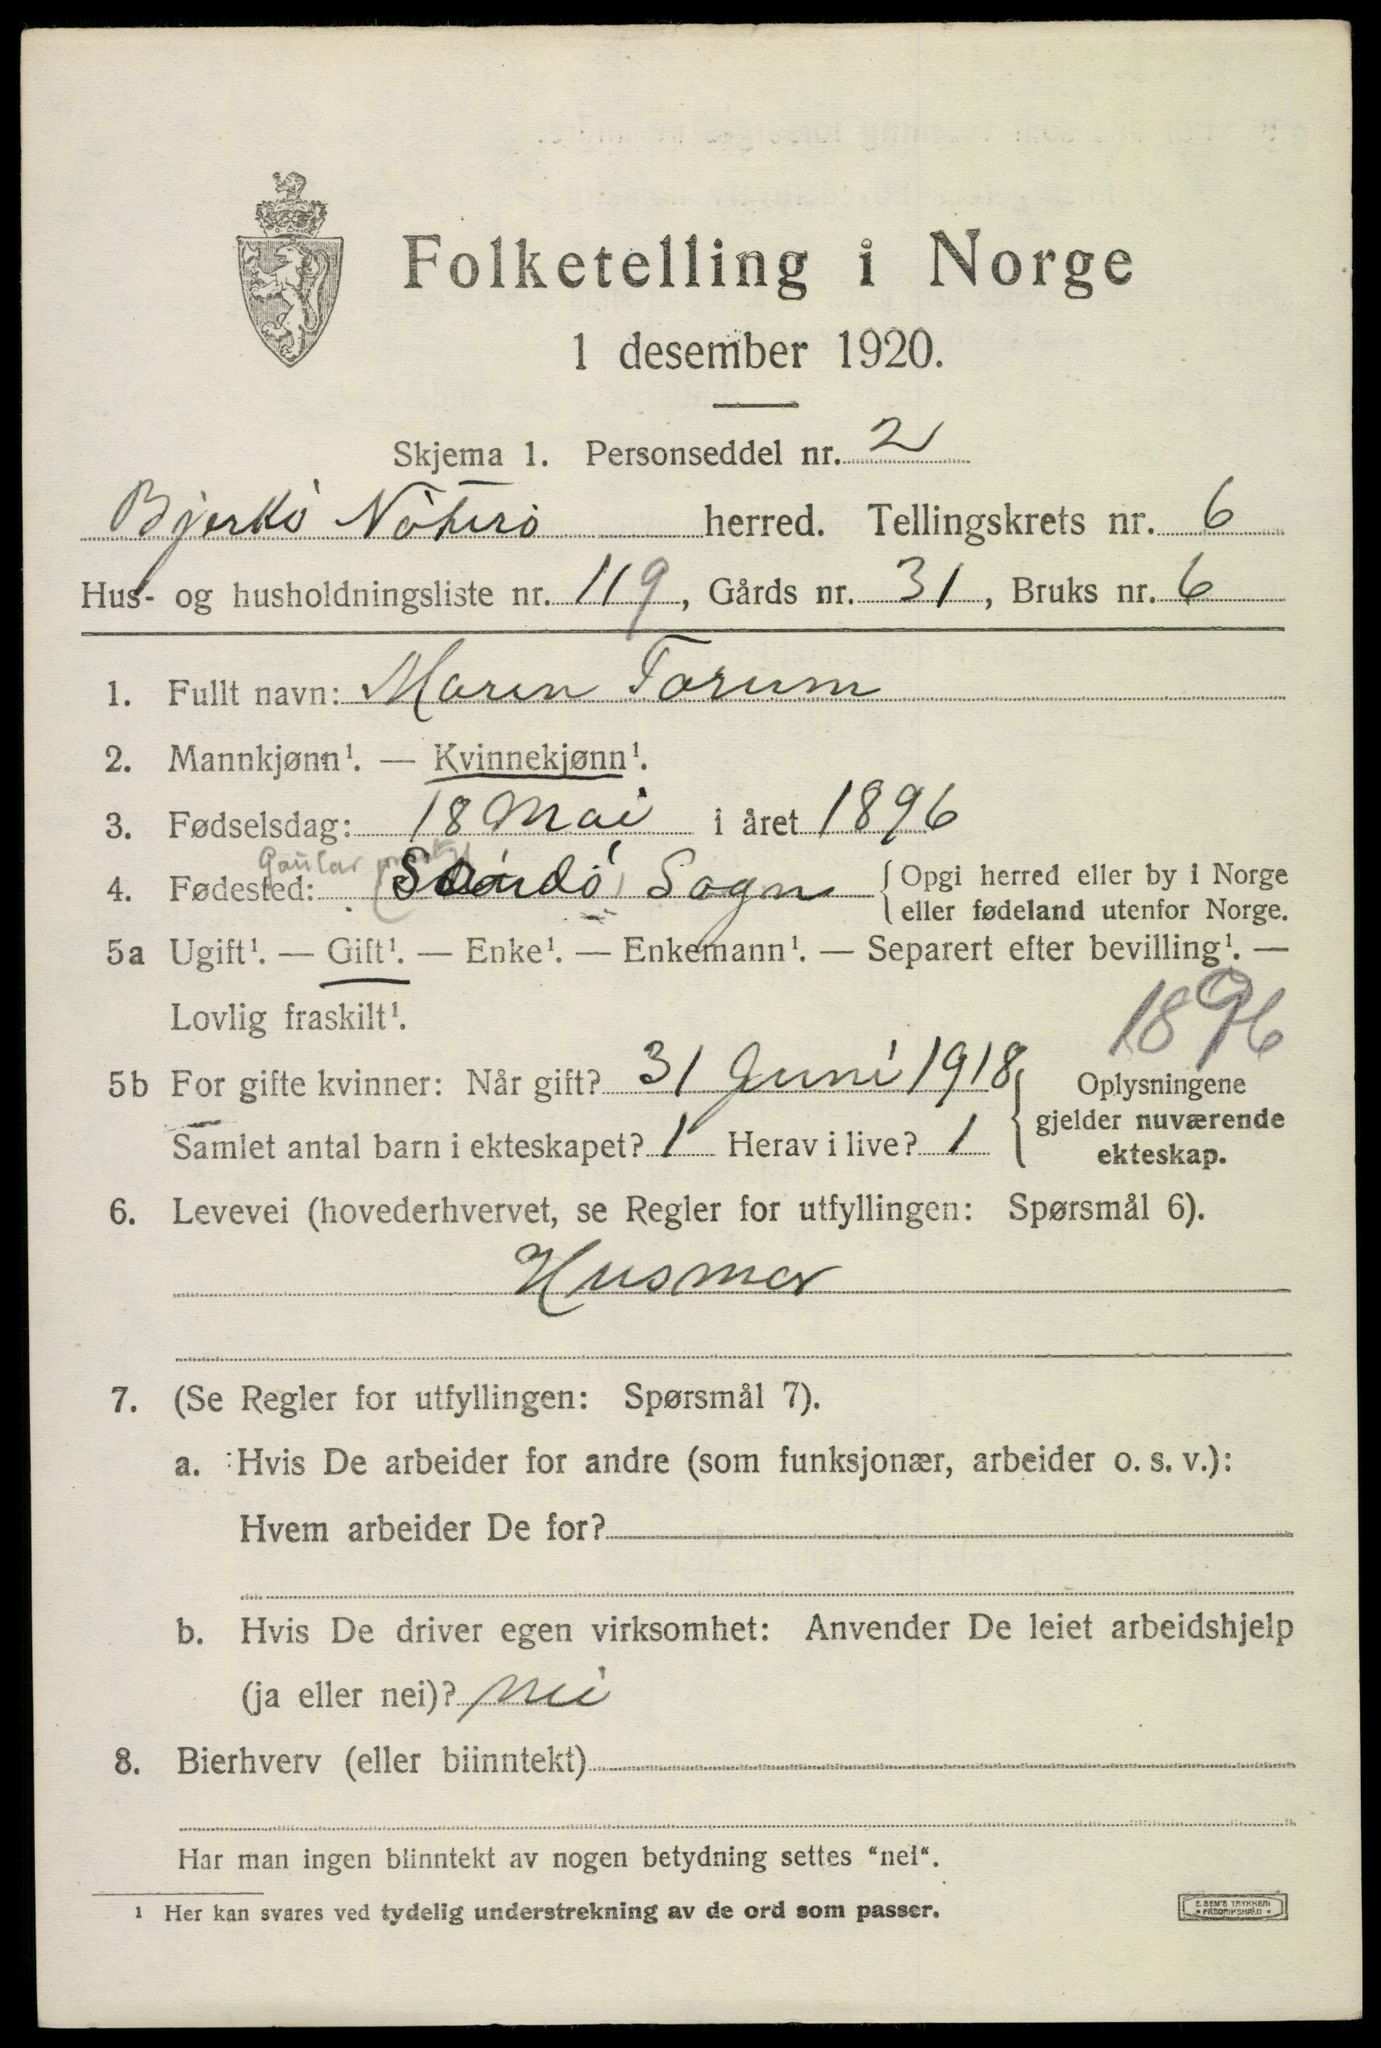 Folketelling i Norge
1 desember 1920.
Skjema 1. Personseddel nr. 2
Bjerkö Nöterö herred. Tellingskrets nr. 6
Hus- og husholdningsliste nr. 119, Gårds nr. 31, Bruks nr. 6
1. Fullt navn: Maren Farum
2. Mannkjønn¹. — Kvinnekjønn¹.
3. Fødselsdag: 18 Mai i året 1896
Gaular
4. Fødested: Sogn { Opgi herred eller by i Norge
eller fødeland utenfor Norge.
5a Ugift¹. — Gift¹. — Enke¹. — Enkemann¹. — Separert efter bevilling¹. —
Lovlig fraskilt¹.
1896
5b For gifte kvinner: Når gift? 31 Juni 1918 { Oplysningene
gjelder nuværende
Samlet antal barn i ekteskapet? 1 Herav i live? 1
ekteskap.
6. Levevei (hovederhvervet, se Regler for utfyllingen: Spørsmål 6).
Husmor
7. (Se Regler for utfyllingen: Spørsmål 7).
a. Hvis De arbeider for andre (som funksjonær, arbeider o. s. v.):
Hvem arbeider De for?
b. Hvis De driver egen virksomhet: Anvender De leiet arbeidshjelp
(ja eller nei)? nei
8. Bierhverv (eller biinntekt)
Har man ingen biinntekt av nogen betydning settes "nei".
¹ Her kan svares ved tydelig understrekning av de ord som passer.
E. SEM'S TRYKKERI
FREDRIKSHALD